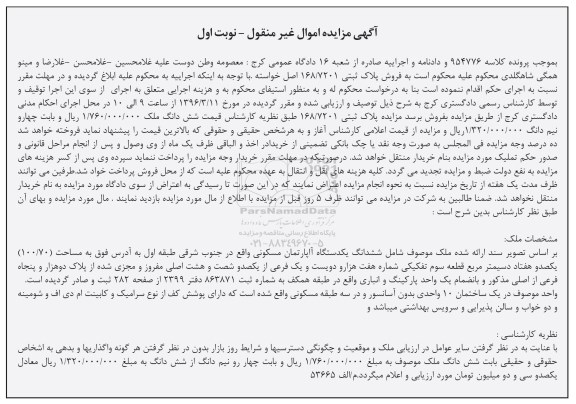 آگهی مزایده اموال غیر منقول - نوبت اول
بموجب پرونده کلاسه ۹۵۴۷۷۶ و دادنامه و اجراییه صادره از شعبه ۱۶ دادگاه عمومی کرج : معصومه وطن دوست علیه غلامحسین -غلامحسن -غلارضا و مینو
همگی شاهگلدی محکوم علیه محکوم است به فروش پلاک ثبتی ۱۶۸/۷۲۰۱ اصل خواسته .با توجه به اینکه اجراییه به محکوم علیه ابلاغ گردیده و در مهلت مقرر
نسبت به اجرای حکم اقدام ننموده است بنا به درخواست محکوم له و به منظور استیفای محکوم به و هزینه اجرایی متعلق به اجرای از سوی این اجرا توقیف و
توسط کارشناس رسمی دادگستری کرج به شرح ذیل توصیف و ارزیابی شده و مقرر گردیده در مورخ ۱۳۹۶/۳/۱۱ از ساعت ۹ الی ۱۰ در محل اجرای احکام مدنی
دادگستری کرج از طریق مزایده بفروش برسد مزایده پلاک ثبتی ۱۶۸/۷۲۰۱ طبق نظریه کارشناس قیمت شش دانگ ملک ۱/۷۶۰/۰۰۰/۰۰۰ ریال و بابت چهارو
نیم دانگ ۱/۳۲۰/۰۰۰/۰۰۰ریال و مزایده از قیمت اعلامی کارشناس آغاز و به هرشخص حقیقی و حقوقی که بالاترین قیمت را پیشنهاد نماید فروخته خواهد شد
ده درصد وجه مزایده فی المجلس به صورت وجه نقد یا چک بانکی تضمینی از خریداردر اخذ و الباقی ظرف یک ماه از وی وصول و پس از انجام مراحل قانونی و
صدور حکم تملیک مورد مزایده بنام خریدار منتقل خواهد شد. درصورتیکه در مهلت مقرر خریدار وجه مزایده را پرداخت ننماید سپرده وی پس از کسر هزینه های
مزایده به نفع دولت ضبط و مزایده تجدید می گردد. کلیه هزینه های نقل و انتقال به عهده محکوم علیه است که از محل فروش پرداخت خواد شد.طرفین می توانند
ظرف مدت یک هفته از تاریخ مزایده نسبت به نحوه انجام مزایده اعتراض نمایند که در این صورت تا رسیدگی به اعتراض از سوی دادگاه مورد مزایده به نام خریدار
منتقل نخواهد شد. ضمنا طالبین به شرکت در مزایده می توانند ظرف ۵ روز قبل از مزایده با اطلاع از مال مورد مزایده بازدید نمایند . مال مورد مزایده و بهای آن
طبق نظر کارشناس بدین شرح است :
ParsNamadData
پایگاه اطلاع رسانی مناقصه و مزایده
۰۲۱-۸۸۳۴۹۶۷۰-۵
مشخصات ملک:
بر اساس تصویر سند ارائه شده ملک موصوف شامل ششدانگ یکدستگاه آاپارتمان مسکونی واقع در جنوب شرقی طبقه اول به آدرس فوق به مساحت (۱۰۰/۷۰)
یکصدو هفتاد دسیمتر مربع قطعه سوم تفکیکی شماره هفت هزارو دویست و یک فرعی از یکصدو شصت و هشت اصلی مفروز و مجزی شده از پلاک دوهزار و پنجاه
فرعی از اصلی مذکور و بانضمام یک واحد پارکینگ و انباری واقع در طبقه همکف به شماره ثبت ۸۶۳۸۷۱ دفتر ۲۳۹۹ از صفحه ۲۸۲ ثبت و صادر گردیده است.
واحد موصوف در یک ساختمان ۱۰ واحدی بدون آسانسور و در سه طبقه مسکونی واقع شده است که دارای پوشش کف از نوع سرامیک و کابینت ام دی اف و شومینه
و دو خواب و سالن پذیرایی و سرویس بهداشتی میباشد و
نظریه کارشناسی :
با عنایت به در نظر گرفتن سایر عوامل در ارزیابی ملک و موقعیت و چگونگی دسترسیها و شرایط روز بازار بدون در نظر گرفتن هر گونه واگذاریها و بدهی به اشخاص
حقوقی و حقیقی بابت شش دانگ ملک موصوف به مبلغ ۱/۷۶۰/۰۰۰/۰۰۰ ریال و بابت چهار رو نیم دانگ از شش دانگ به مبلغ ۱/۳۲۰/۰۰۰/۰۰۰ ریال معادل
یکصدو سی و دو میلیون تومان مورد ارزیابی و اعلام میگردد.م/الف ۵۳۶۶۵